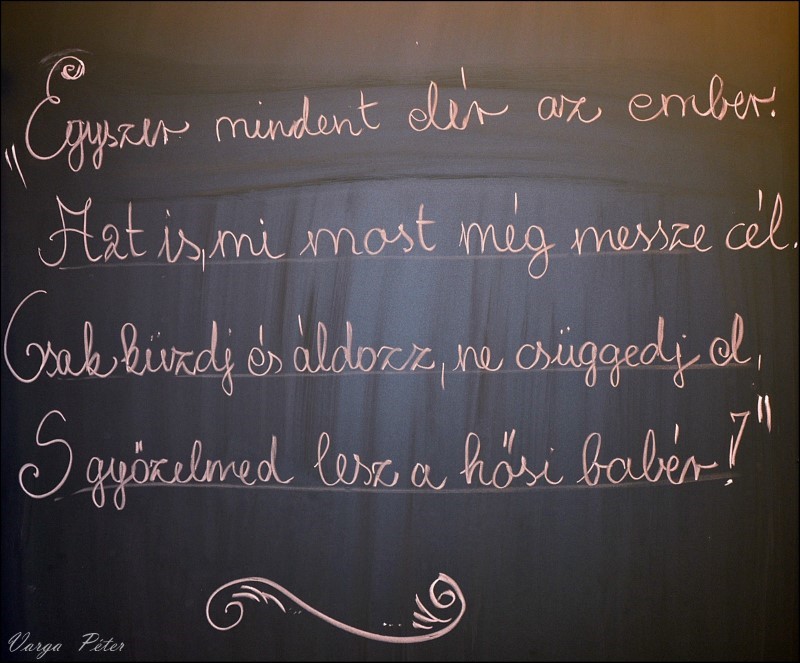 „Egyszer mindent elér az ember.
Azt is, mi most még messze cél.
Csak küzdj és áldozz, ne csüggedj el,
S győzelmed lesz a hősi babér!"
Varga Péter